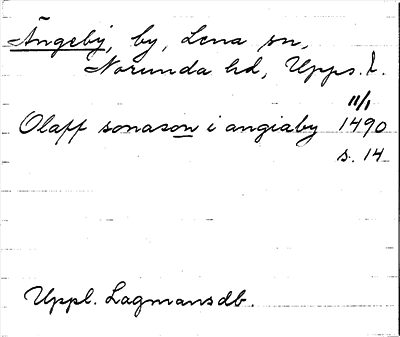 Ängeby, by, Lena sn,
Norunda hd, Upps. l.
11/1
Olaff sonason i angiaby 1490
s. 14
Uppl. Lagmansdb.